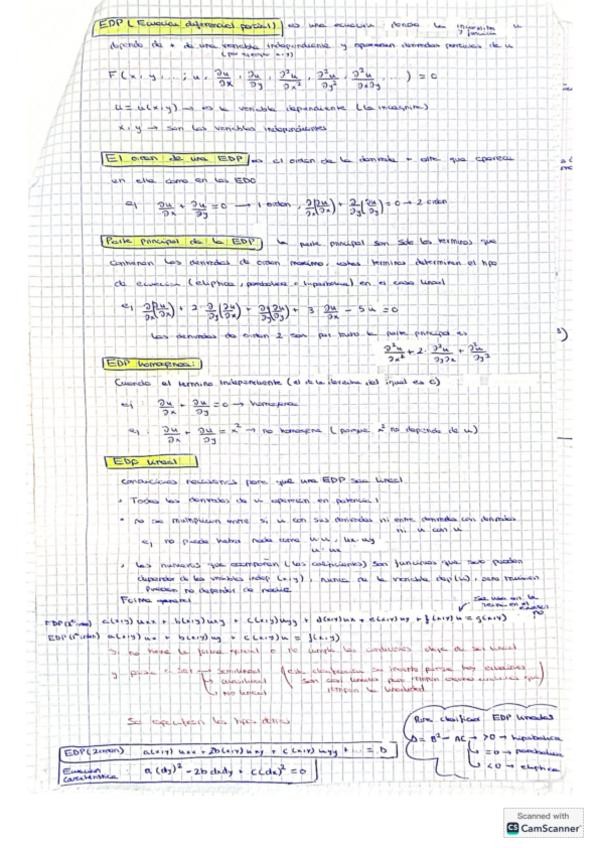 EDP (Ecuacion diferencial parcial) es una ecuación donde la incognita u
y función
depende de + de una variable independiente y aparecen derivadas parciales de u
(por ejemplo x,y)
F(x, y, ...; u, ∂u/∂x, ∂u/∂y, ∂²u/∂x², ∂²u/∂y², ∂²u/∂x∂y, ...) = 0
u = u(x,y) → es la variable dependiente (la incognita)
x, y → son las variables independientes
El orden de una EDP es el orden de la derivada + alta que aparece
en ella como en las EDO
ej ∂u/∂x + ∂u/∂y = 0 → 1 orden, ∂/∂x(∂u/∂x) + ∂/∂y(∂u/∂y) = 0 → 2 orden
Parte principal de la EDP la parte principal son solo los terminos que
contienen las derivadas de orden maximo, estos terminos determinan el tipo
de ecuacion (eliptica, parabolica o hiperbolica) en el caso lineal
ej ∂/∂x(∂u/∂x) + 2 ∂/∂y(∂u/∂x) + ∂/∂y(∂u/∂y) + 3 ∂u/∂x - 5u = 0
Las derivadas de orden 2 son por tanto la parte principal es
∂²u/∂x² + 2 · ∂²u/∂y∂x + ∂²u/∂y²
EDP homogenea:
Cuando el termino independiente (el de la derecha del igual es 0)
ej: ∂u/∂x + ∂u/∂y = 0 → homogenea
ej: ∂u/∂x + ∂u/∂y = x² → no homogenea (porque x² no depende de u)
EDP lineal
condiciones necesarias para que una EDP sea lineal
• Todas las derivadas de u aparecen en potencia 1
• no se multiplican entre si u con sus derivadas ni entre derivadas con derivadas
ni u con u
ej no puede haber nada como u·u, ux·uy
u·ux
• Los numeros que acompañan (los coeficientes) son funciones que solo pueden
depender de las variables indep (x,y), nunca de la variable dep (u), pero tambien
pueden no depender de nadie
Forma general
EDP (2º orden) a(x,y) uxx + b(x,y) uxy + c(x,y) uyy + d(x,y) ux + e(x,y) uy + f(x,y) u = g(x,y)
EDP (1º orden) a(x,y) ux + b(x,y) uy + c(x,y) u = f(x,y)
Si no tiene la forma general o no cumple las condiciones deja de ser lineal
y pasa a ser → semilineal
→ cuasilineal
→ no lineal
Para clasificar EDP lineales
Δ = B² - AC → >0 → hiperbolica
→ =0 → parabolica
→ <0 → eliptica
EDP (2 orden) a(x,y) uxx + 2b(x,y) uxy + c(x,y) uyy + ... = 0
Ecuación caracteristica : a (dy)² - 2b dxdy + c(dx)² = 0
Scanned with
CS CamScanner